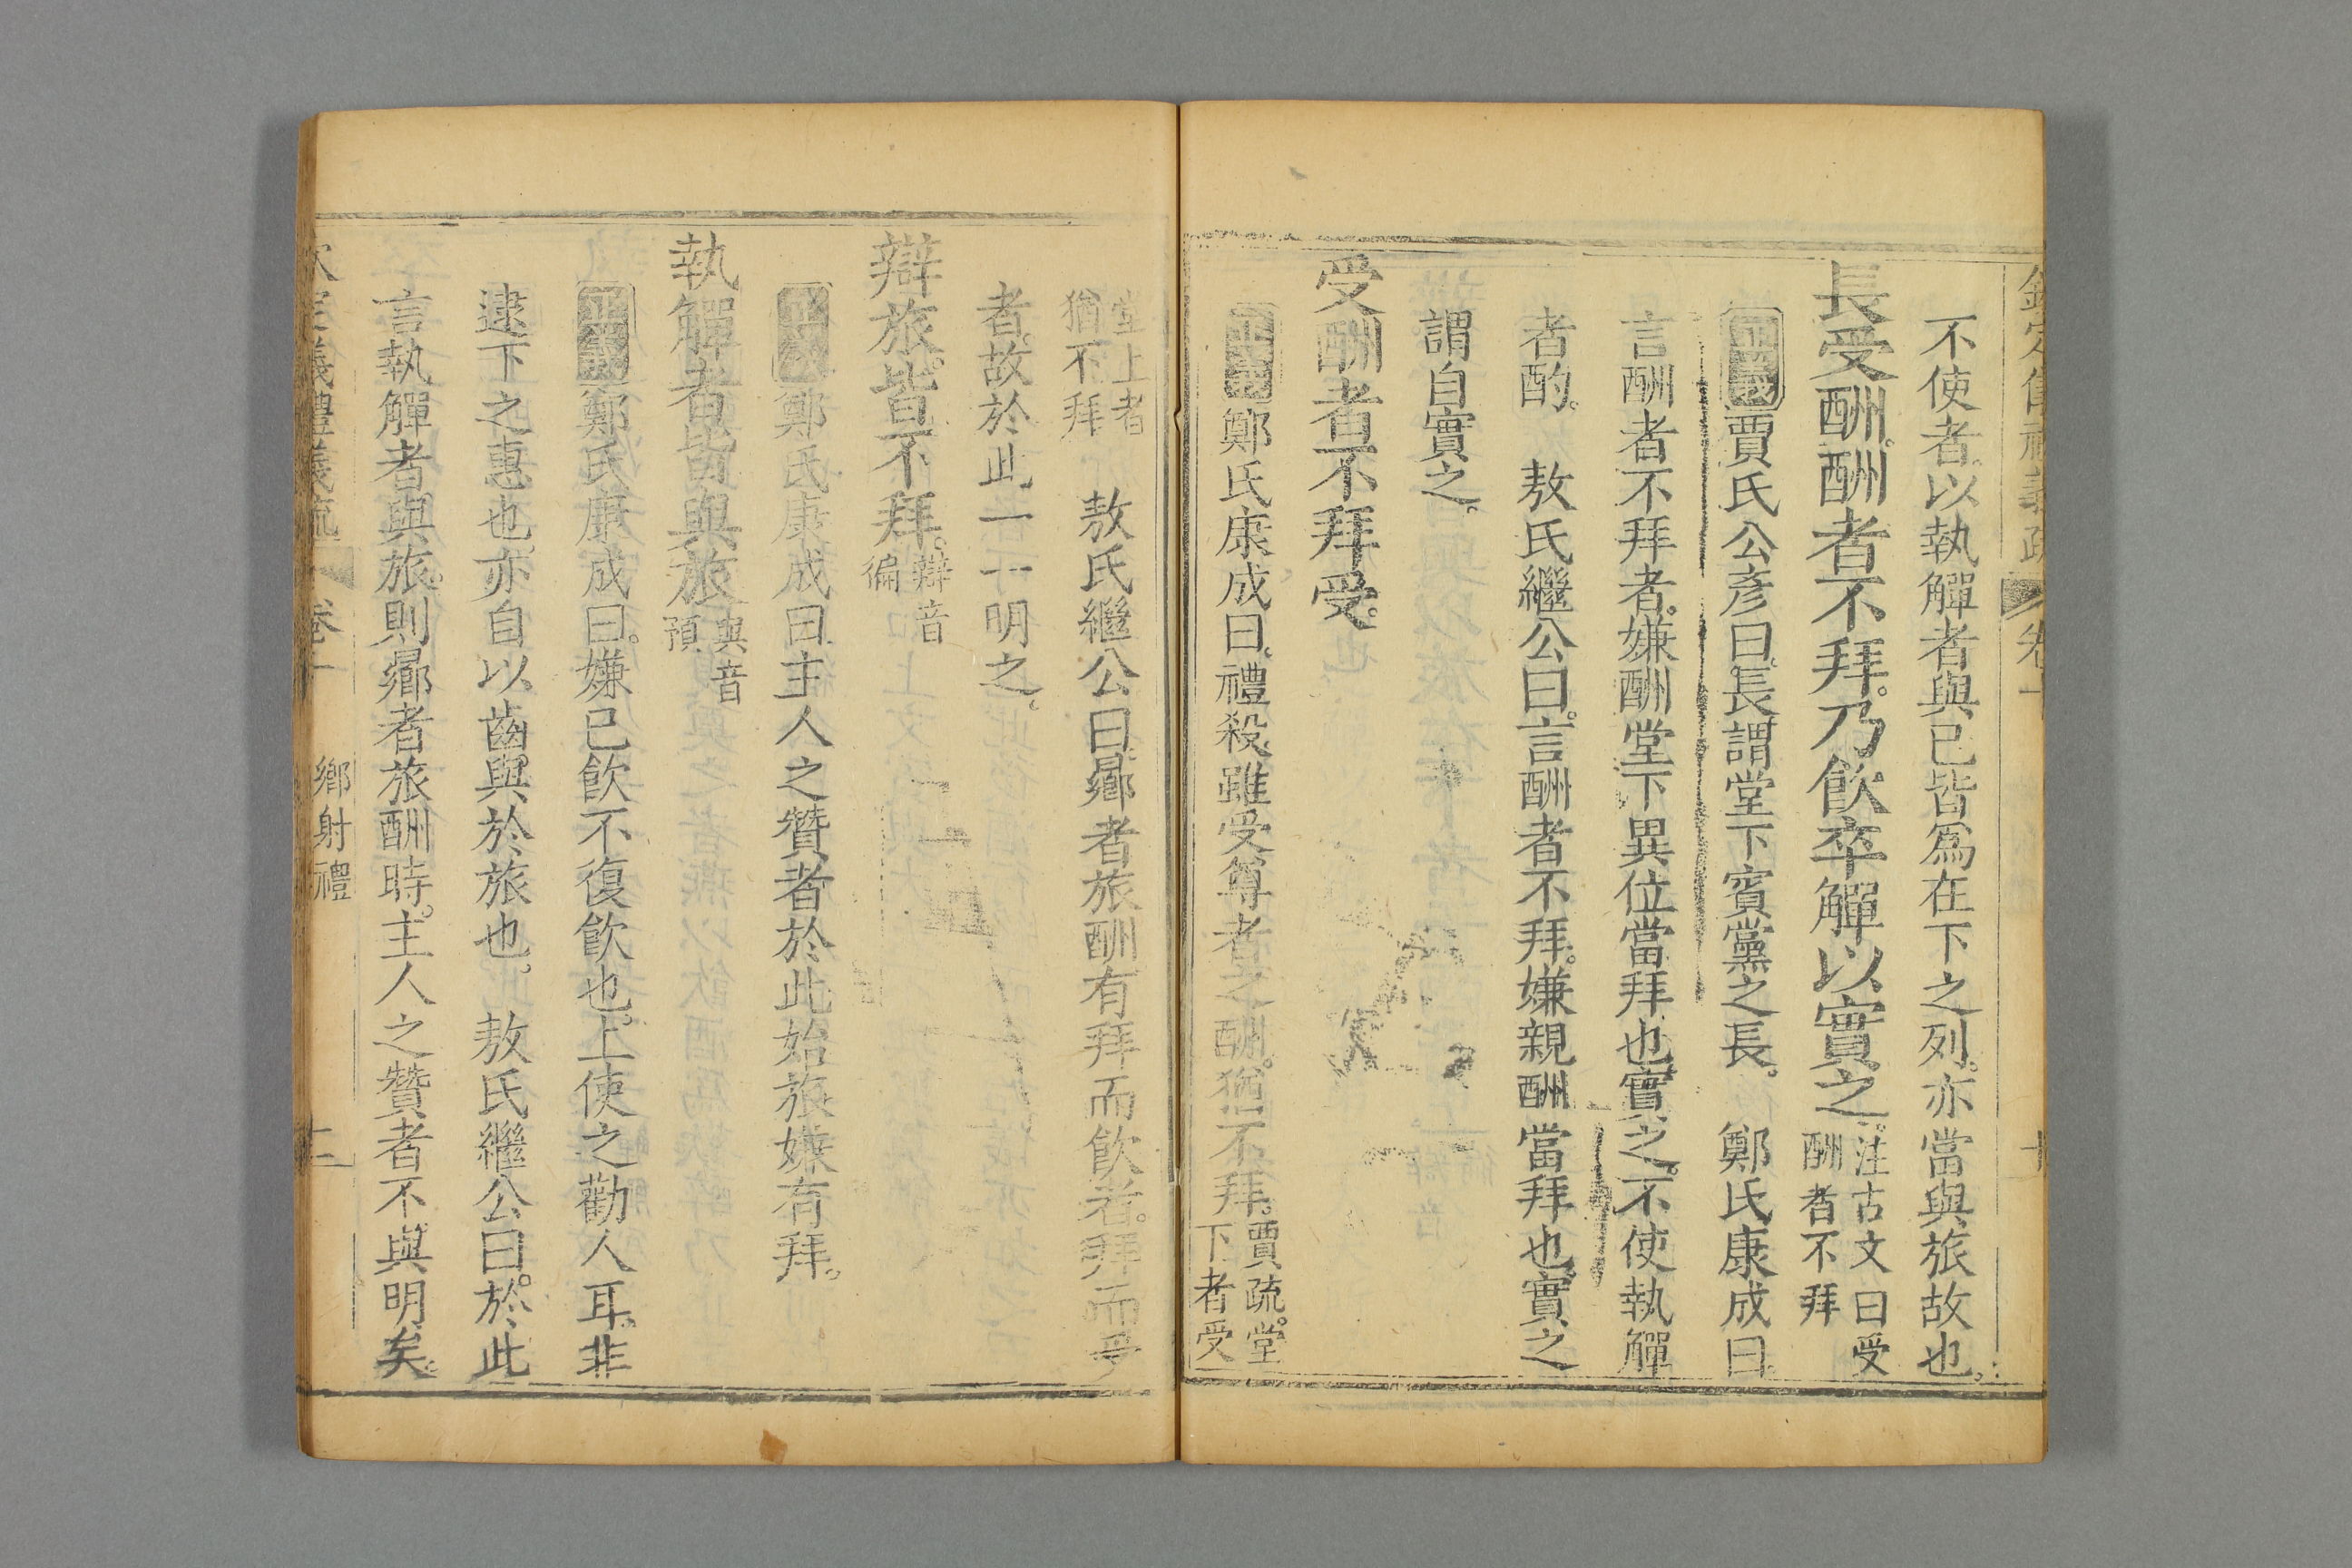 欽定儀禮義疏 卷十
不使者以執觶者與已皆爲在下之列亦當與旅故也
長受酬酬者不拜乃飮卒觶以實之 注古文曰受
酬者不拜
正義 賈氏公彥曰長謂堂下賓黨之長 鄭氏康成曰
言酬者不拜者嫌酬堂下異位當拜也實之不使執觶
者酌 敖氏繼公曰言酬者不拜嫌親酬當拜也實之
謂自實之
受酬者不拜受
正義 鄭氏康成曰禮殺雖受尊者之酬猶不拜 賈疏堂
下者受
堂上者
猶不拜
敖氏繼公曰曏者旅酬有拜而飮者拜而受
者故於此一一明之
辯旅皆不拜 辯音
徧
正義 鄭氏康成曰主人之贊者於此始旅嫌有拜
執觶者皆與旅 與音
預
正義 鄭氏康成曰嫌已飮不復飮也上使之勸人耳非
逮下之惠也亦自以齒與於旅也 敖氏繼公曰於此
言執觶者與旅則曏者旅酬時主人之贊者不與明矣
欽定儀禮義疏 卷十 鄉射禮